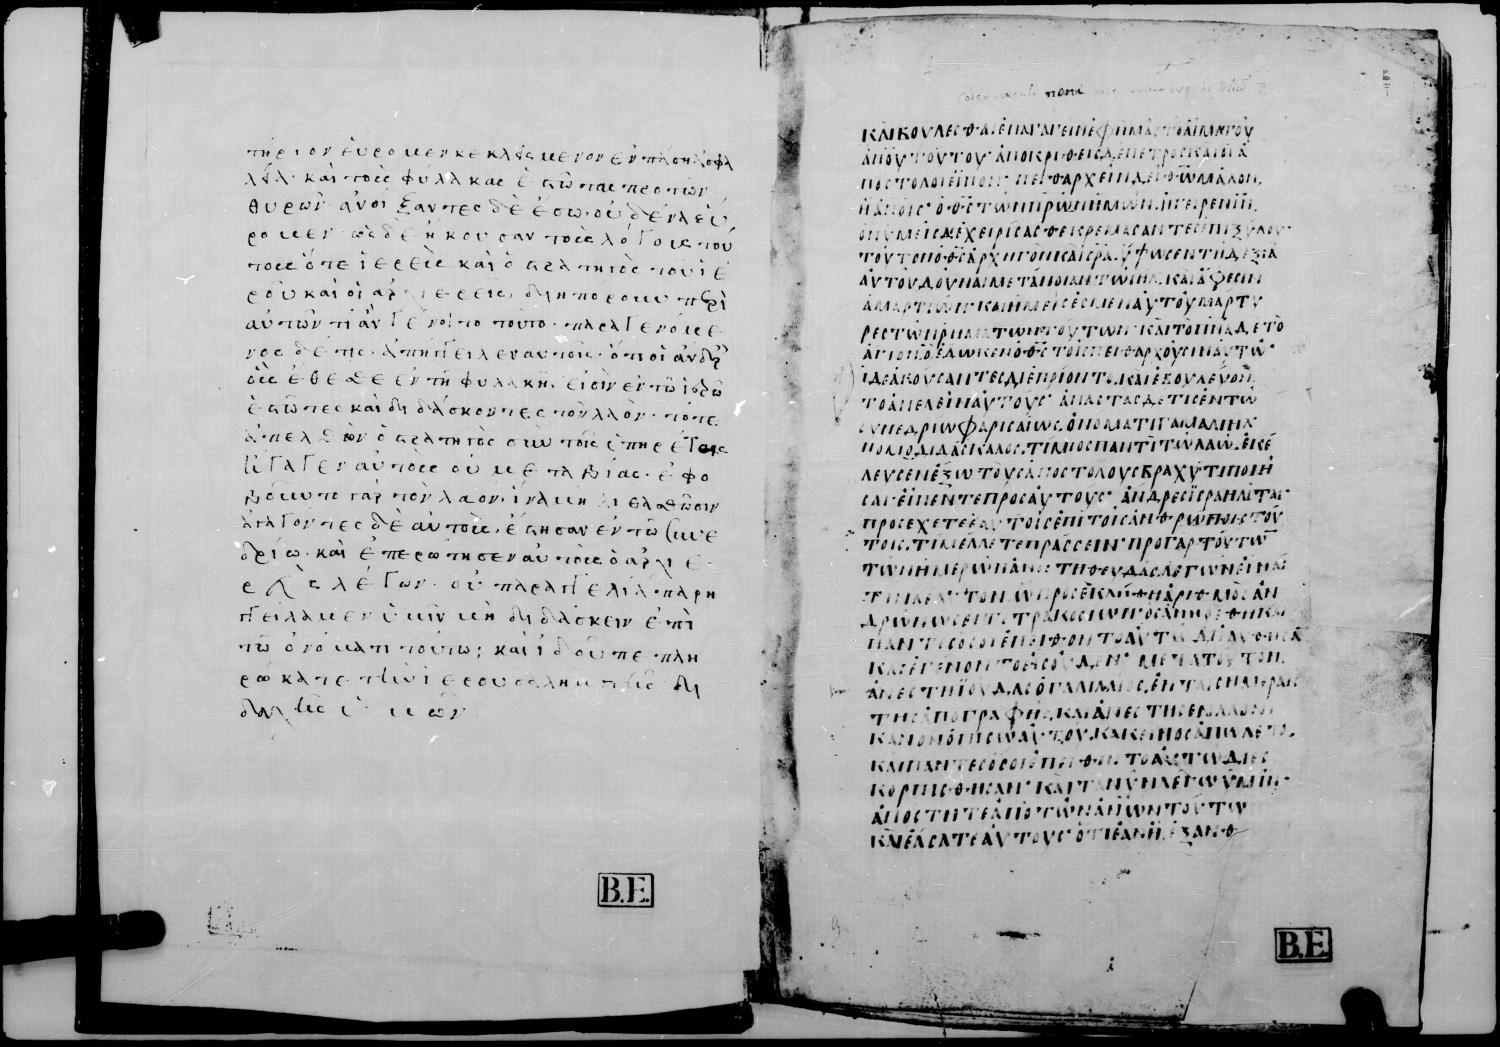 τήριον εὕρομεν κεκλεισμένον ἐν πάσῃ ἀσφα
λεία· καὶ τοὺς φύλακας ἑστῶτας πρὸ τῶν
θυρῶν· ἀνοίξαντες δὲ ἔσω· οὐδένα εὕ
ρομεν· ὡς δὲ ἤκουσαν τοὺς λόγους τού
τους ὅτε ἱερεὺς καὶ ὁ στρατηγὸς τοῦ ἱε
ροῦ καὶ οἱ ἀρχιερεῖς, διηπόρουν περὶ
αὐτῶν τί ἂν γένοιτο τοῦτο· παραγενόμε
νος δέ τις· ἀπήγγειλεν αὐτοῖς· ὅτι οἱ ἄνδρες
οὓς ἔθεσθε ἐν τῇ φυλακῇ, εἰσὶν ἐν τῷ ἱερῷ
ἑστῶτες καὶ διδάσκοντες τὸν λαόν· τότε
ἀπελθὼν ὁ στρατηγὸς σὺν τοῖς ὑπηρέταις
ἤγαγεν αὐτοὺς οὐ μετὰ βίας· ἐφο
βοῦντο γὰρ τὸν λαον· ἵνα μὴ λιθασθῶσιν
ἀγαγόντες δὲ αὐτοὺς, ἔστησαν ἐν τῷ συνε
δρίω· καὶ ἐπερώτησεν αὐτοὺς ὁ ἀρχιε
ρεὺς λέγων· οὐ παραγγελία παρη
γγείλαμεν ὑμῖν μὴ διδάσκειν ἐπὶ
τῶ ὀνόματι τούτω; καὶ ἰδοὺ πεπλη
ρώκατε τὴν ἱερουσαλὴμ τῆς δι
δαχῆς ὑμῶν
B.E.
ΚΑΙ ΒΟΥΛΕΣΘΑΙ ΕΠΑΓΑΓΕΙΝ ΕΦ ΗΜΑΣ ΤΟ ΑΙΜΑ ΤΟΥ
ΑΝΟΥ ΤΟΥΤΟΥ· ΑΠΟΚΡΙΘΕΙΣ ΔΕ ΠΕΤΡΟΣ ΚΑΙ ΟΙ Α
ΠΟΣΤΟΛΟΙ ΕΙΠΟΝ· ΠΕΙΘΑΡΧΕΙΝ ΔΕΙ ΘΩ ΜΑΛΛΟΝ,
Η ΑΝΟΙΣ· Ο ΘΣ ΤΩΝ ΠΡΩΝ ΗΜΩΝ, ΗΓΕΙΡΕΝ ΙΝ,
ΟΝ ΥΜΕΙΣ ΔΙΕΧΕΙΡΙΣΑΣΘΕ ΚΡΕΜΑΣΑΝΤΕΣ ΕΠΙ ΞΥΛΟΥ·
ΤΟΥΤΟΝ Ο ΘΣ ΑΡΧΗΓΟΝ ΚΑΙ ΣΡΑ, ΥΨΩΣΕΝ ΤΗ ΔΕΞΙΑ
ΑΥΤΟΥ ΔΟΥΝΑΙ ΜΕΤΑΝΟΙΑΝ ΤΩ ΙΗΛ ΚΑΙ ΑΦΕΣΙΝ
ΑΜΑΡΤΙΩΝ· ΚΑΙ ΗΜΕΙΣ ΕΣΜΕΝ ΑΥΤΟΥ ΜΑΡΤΥ
ΡΕΣ ΤΩΝ ΡΗΜΑΤΩΝ ΤΟΥΤΩΝ· ΚΑΙ ΤΟ ΠΝΑ ΔΕ ΤΟ
ΑΓΙΟΝ Ο ΕΔΩΚΕΝ Ο ΘΣ ΤΟΙΣ ΠΕΙΘΑΡΧΟΥΣΙΝ ΑΥΤΩ·
ΟΙ ΔΕ ΑΚΟΥΣΑΝΤΕΣ ΔΙΕΠΡΙΟΝΤΟ, ΚΑΙ ΕΒΟΥΛΕΥΟΝ
ΤΟ ΑΝΕΛΕΙΝ ΑΥΤΟΥΣ· ΑΝΑΣΤΑΣ ΔΕ ΤΙΣ ΕΝ ΤΩ
ΣΥΝΕΔΡΙΩ ΦΑΡΙΣΑΙΟΣ, ΟΝΟΜΑΤΙ ΓΑΜΑΛΙΗΛ·
ΝΟΜΟΔΙΔΑΣΚΑΛΟΣ, ΤΙΜΙΟΣ ΠΑΝΤΙ ΤΩ ΛΑΩ, ΕΚΕ
ΛΕΥΣΕΝ ΕΞΩ ΤΟΥΣ ΑΠΟΣΤΟΛΟΥΣ ΒΡΑΧΥ ΤΙ ΠΟΙΗ
ΣΑΙ· ΕΙΠΕΝ ΤΕ ΠΡΟΣ ΑΥΤΟΥΣ· ΑΝΔΡΕΣ ΙΣΡΑΗΛΙΤΑΙ·
ΠΡΟΣΕΧΕΤΕ ΕΑΥΤΟΙΣ ΕΠΙ ΤΟΙΣ ΑΝΘΡΩΠΟΙΣ ΤΟΥ
ΤΟΙΣ, ΤΙ ΜΕΛΛΕΤΕ ΠΡΑΣΣΕΙΝ· ΠΡΟ ΓΑΡ ΤΟΥΤΩ
ΤΩΝ ΗΜΕΡΩΝ ΑΝΕΣΤΗ ΘΕΥΔΑΣ ΛΕΓΩΝ ΕΙΝΑΙ
ΤΙΝΑ ΕΑΥΤΟΝ Ω ΠΡΟΣΕΚΛΙΘΗ ΑΡΙΘΜΟΣ ΑΝ
ΔΡΩΝ ΩΣΕΙ ΤΕΤΡΑΚΟΣΙΩΝ
ΠΑΝΤΕΣ ΟΣΟΙ ΕΠΕΙΘΟΝΤΟ ΑΥΤΩ ΔΙΕΛΥΘΗΣΑ
ΚΑΙ ΕΓΕΝΟΝΤΟ ΕΙΣ ΟΥΔΕΝ· ΜΕΤΑ ΤΟΥΤΟΝ,
ΑΝΕΣΤΗ ΙΟΥΔΑΣ Ο ΓΑΛΙΛΑΙΟΣ, ΕΝ ΤΑΙΣ ΗΜΕΡΑΙΣ
ΤΗΣ ΑΠΟΓΡΑΦΗΣ, ΚΑΙ ΑΠΕΣΤΗΣΕΝ ΛΑΟΝ Ι
ΚΑΝΟΝ ΟΠΙΣΩ ΑΥΤΟΥ, ΚΑΚΕΙΝΟΣ ΑΠΩΛΕΤΟ,
ΚΑΙ ΠΑΝΤΕΣ ΟΣΟΙ ΕΠΕΙΘΟΝΤΟ ΑΥΤΩ ΔΙΕΣ
ΚΟΡΠΙΣΘΗΣΑΝ· ΚΑΙ ΤΑ ΝΥΝ ΛΕΓΩ ΥΜΙΝ·
ΑΠΟΣΤΗΤΕ ΑΠΟ ΤΩΝ ΑΝΩΝ ΤΟΥΤΩ
ΚΑΙ ΕΑΣΑΤΕ ΑΥΤΟΥΣ· ΟΤΙ ΕΑΝ Η, ΕΞ ΑΝΘ
B.E.